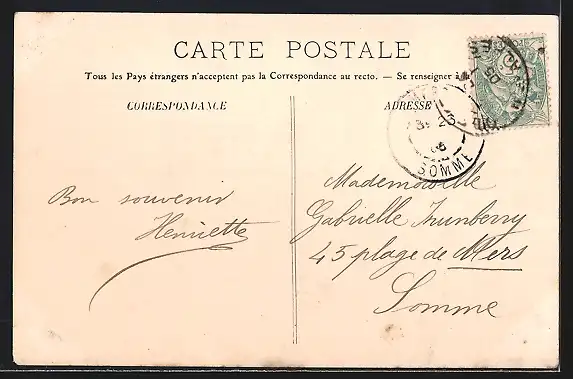 CARTE POSTALE
Tous les Pays étrangers n'acceptent pas la Correspondance au recto. — Se renseigner à
CORRESPONDANCE
ADRESSE
SOMME
Bon souvenir
Henriette
Mademoiselle
Gabrielle
45 plage de Mers
Somme